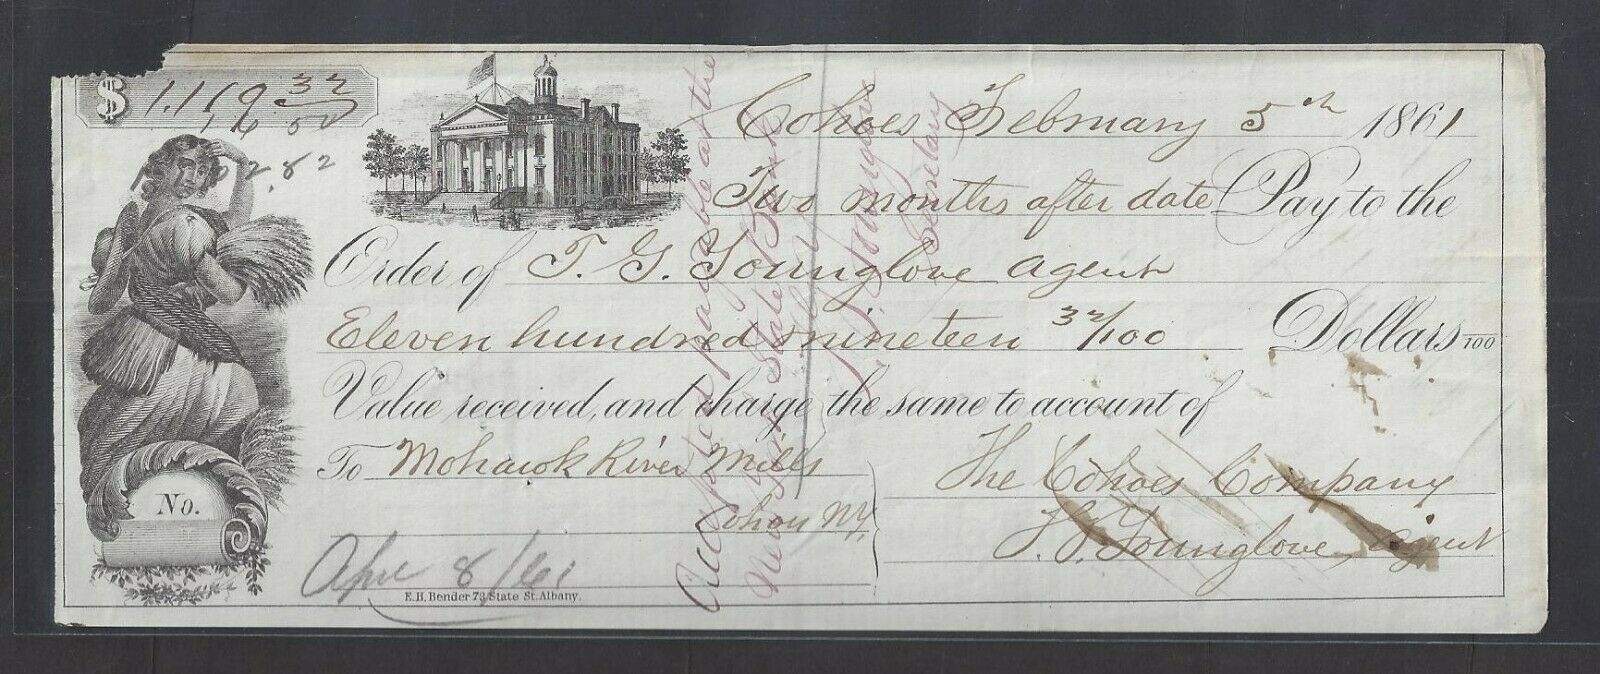 $ 1.119 32
16 50
2.82
Cohoes February 5th 1861
Two months after date Pay to the
Order of T. G. Younglove Agent
Eleven hundred & nineteen 32/100 Dollars 100
Value received, and charge the same to account of
To Mohawk River Mills
Cohoes N.Y.
The Cohoes Company
T. G. Younglove, Agent
No.
Apr 8/61
E.H. Bender 73 State St. Albany.
Accepted payable at the
New York State Bank
Secretary